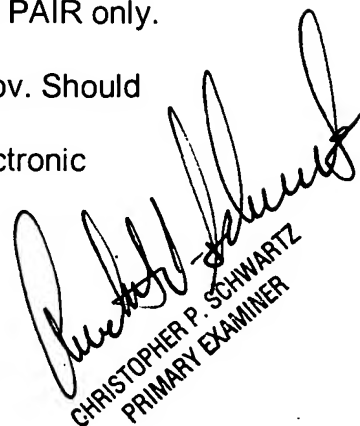 PAIR only.
ov. Should
ctronic
CHRISTOPHER P. SCHWARTZ
PRIMARY EXAMINER